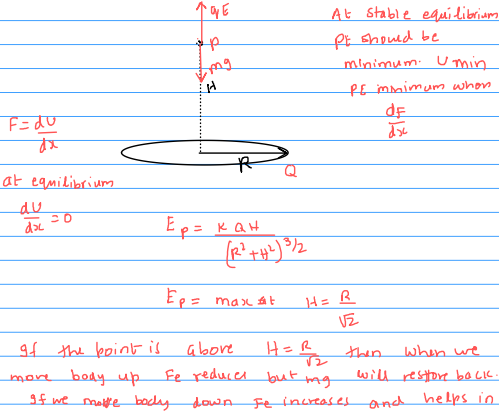 qE
At stable equilibrium
P
PE should be
mg
minimum. U min
H
PE minimum when
F = dU/dx
dF/dx
R
Q
at equilibrium
dU/dx = 0
Ep = KQH/(R²+H²)^3/2
Ep = max at H = R/√2
If the point is above H = R/√2 then when we
move body up Fe reduces but mg will restore back.
If we move body down Fe increases and helps in